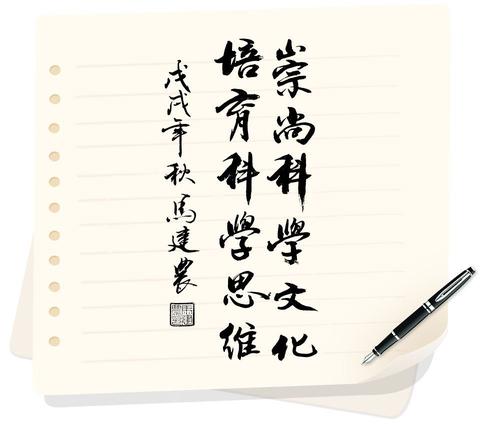 崇尚科學文化
培育科學思維
戊戌年秋馬建農